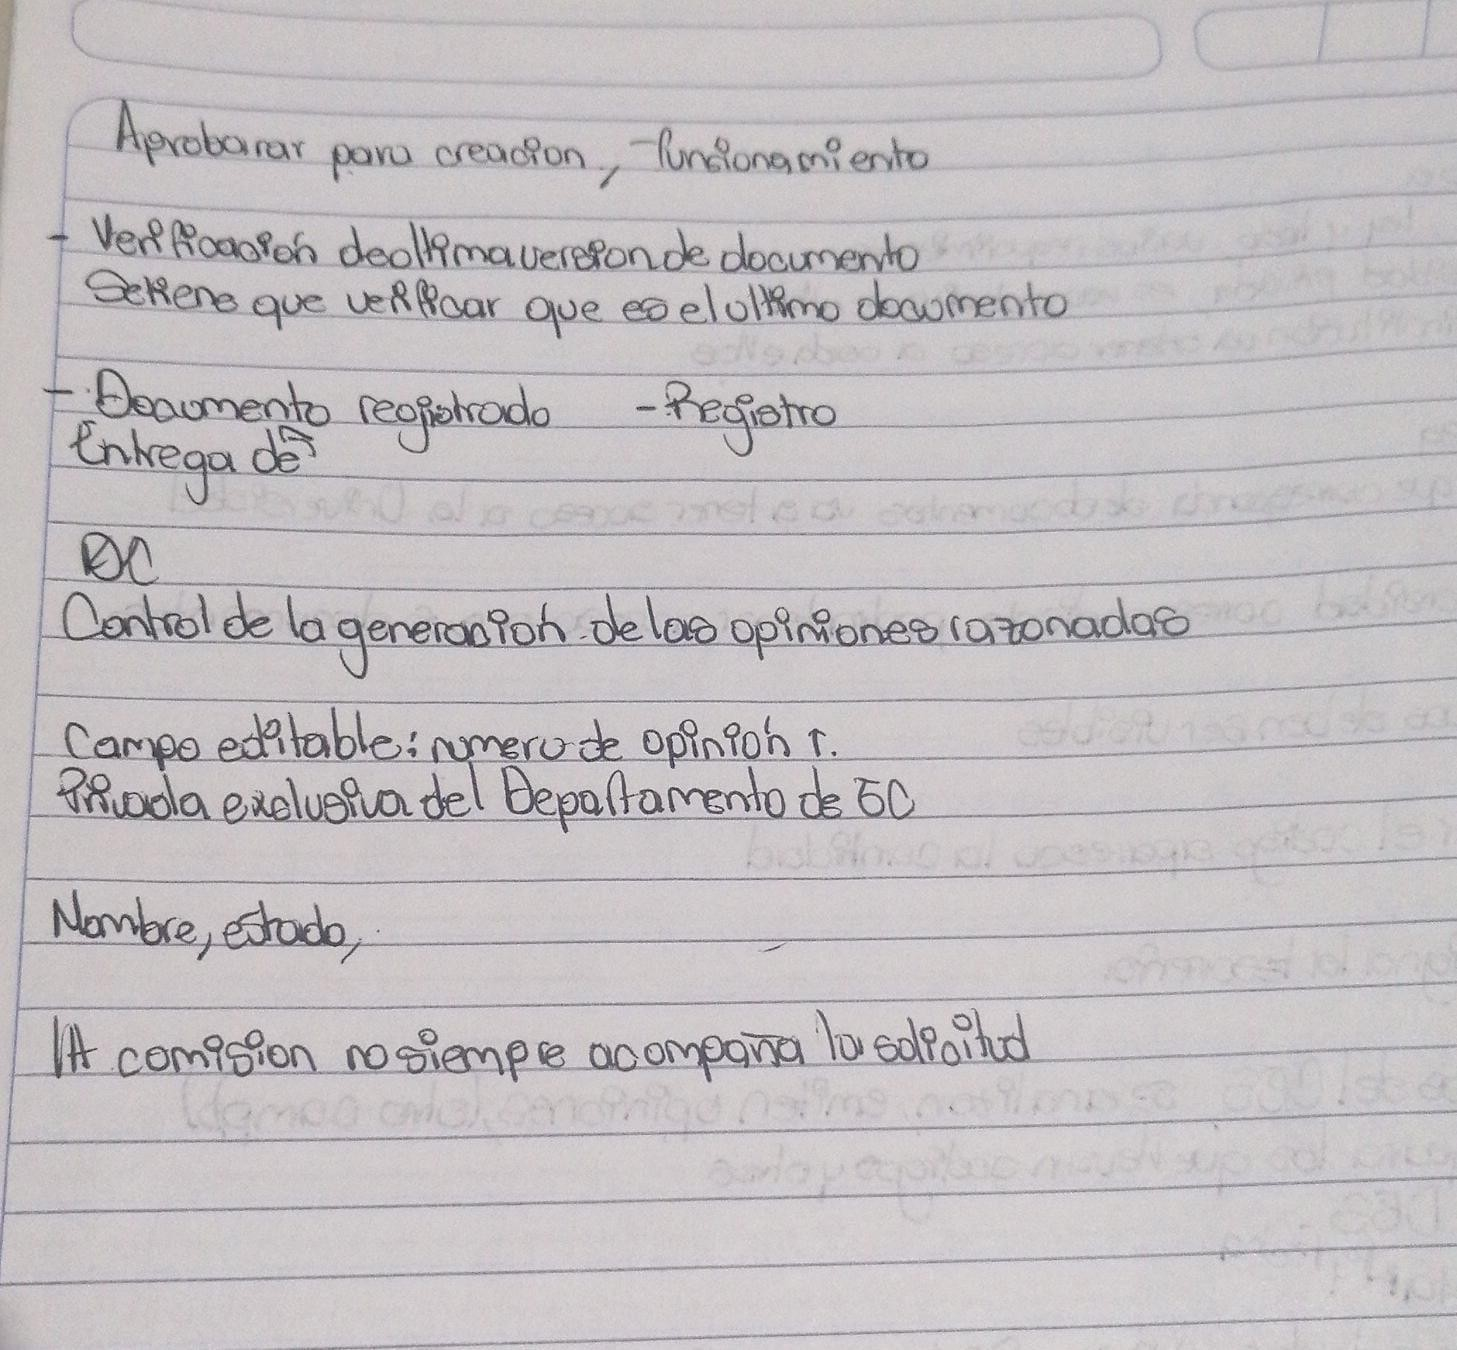 Aprobarar para creacion, - funsionamiento
- Verificacion deoltimaversionde documento
Setiene que verificar que es elultimo documento
- Documento registrado - Registro
Entrega de
DC
Control de la generacion de las opiniones razonadas
Campo editable: numero de opinion r.
Privada exclusiva del Departamento de SC
Nombre, estado,
lA comision no siempre acompaña la solicitud